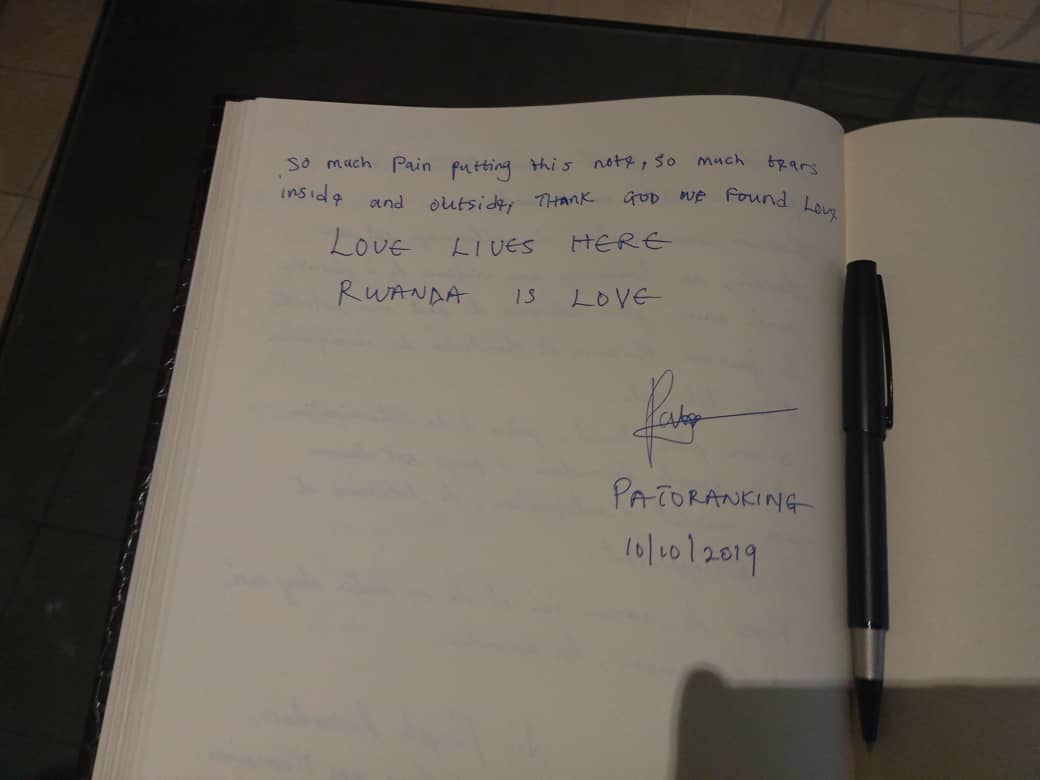 So much Pain putting this note, so much tears
inside and outside, THANK GOD WE Found Love
LOVE LIVES HERE
RWANDA IS LOVE
PATORANKING
10/10/2019